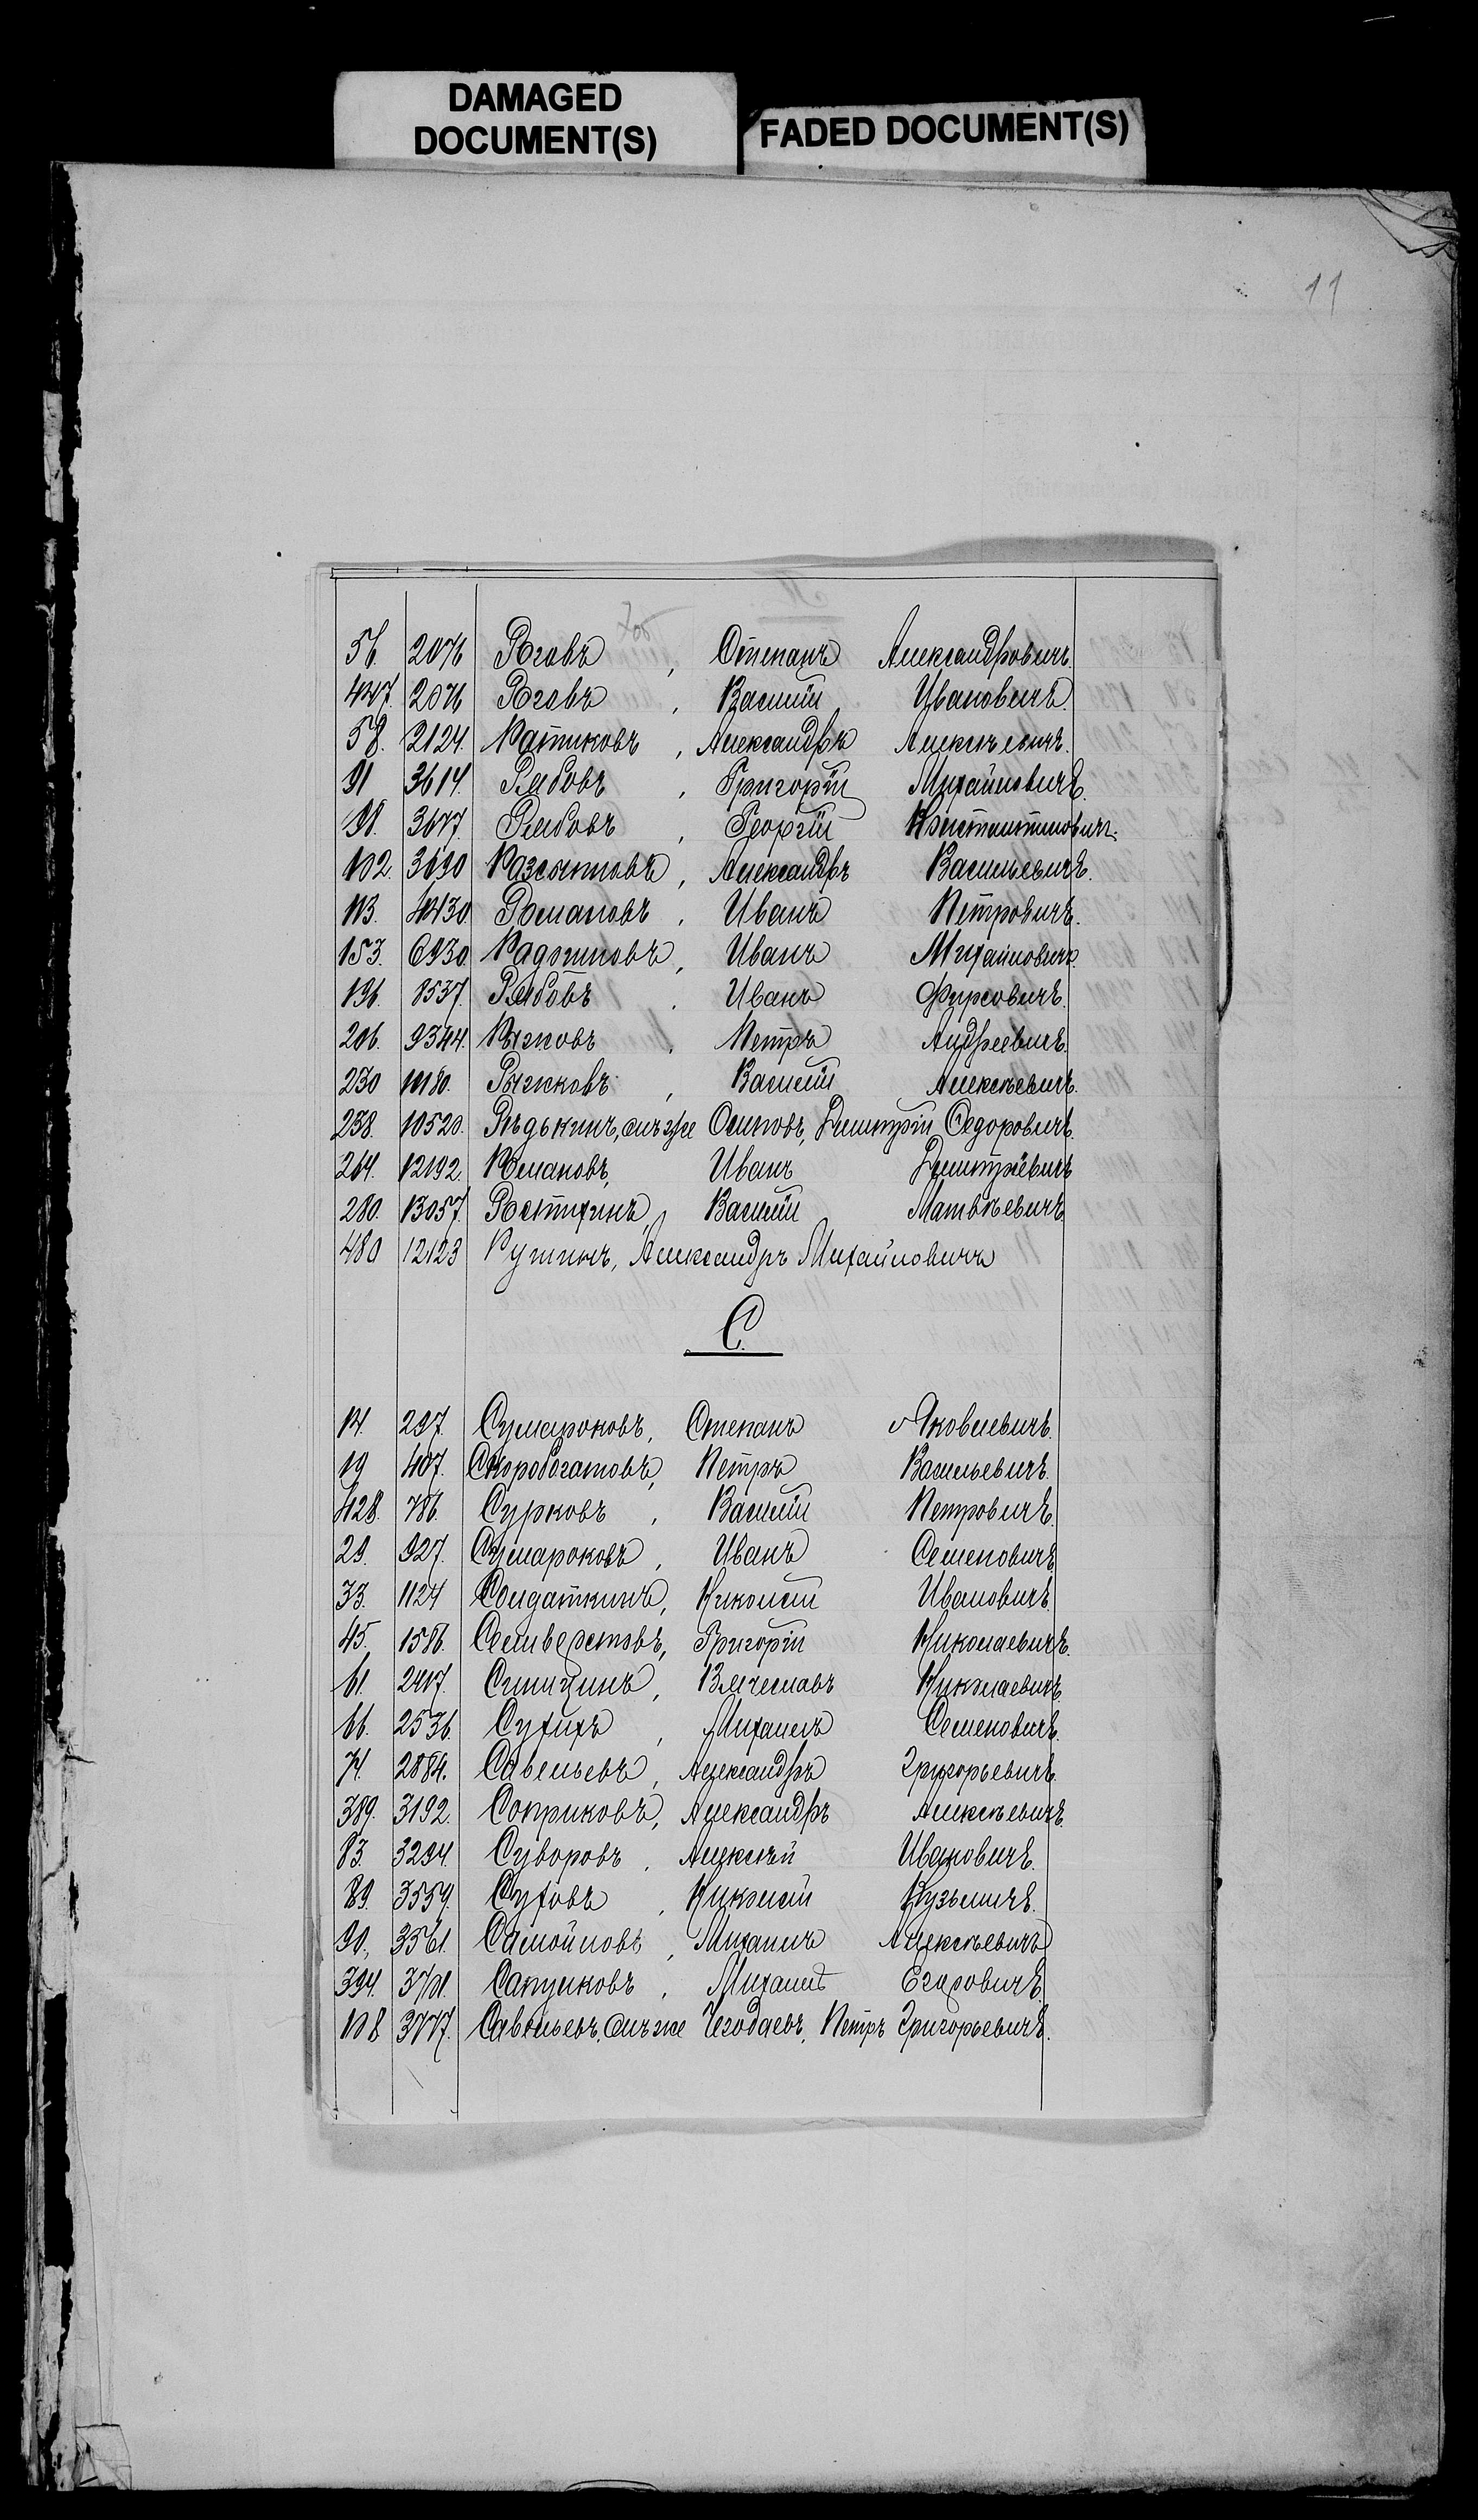 DAMAGED
DOCUMENT(S)
FADED DOCUMENT(S)
11
56. 2076 Роговъ, Степанъ Александровичъ.
447. 2076 Роговъ, Василій Ивановичъ.
58. 2124. Ратниковъ, Александръ Алексѣевичъ.
91 3614. Рябовъ, Григорій Михайловичъ.
98. 3677. Рябовъ, Георгій Константиновичъ.
102. 3690 Александръ Васильевичъ.
113. 4430 Романовъ, Иванъ Петровичъ.
153. 6930. Иванъ Михайловичъ.
196. 8537. Рябовъ, Иванъ Фирсовичъ.
206. 9344. Рыжовъ, Петръ Андреевичъ.
230 10180. Рыжковъ, Василій Алексѣевичъ.
238. 10520. Рѣдькинъ, онъ же Осиповъ, Димитрій Ѳедоровичъ.
264. 12192. Романовъ, Иванъ Димитріевичъ
280. 13057. Василій Матвѣевичъ
480 12123 Александръ Михайловичъ
С.
14. 297. Сумароковъ, Степанъ Яковлевичъ.
19 407. Скоробогатовъ, Петръ Васильевичъ.
428. 786. Сурковъ, Василій Петровичъ.
29. 927. Сумароковъ, Иванъ Семеновичъ
33. 1124 Солдаткинъ, Николай Ивановичъ.
45. 1586. Селиверстовъ, Григорій Николаевичъ.
61. 2417. Синицинъ, Вячеславъ Николаевичъ
66. 2536. Сухихъ, Михаилъ Семеновичъ.
74. 2884. Савельевъ, Александръ Григорьевичъ.
389. 3192. Соприковъ, Александръ Алексѣевичъ.
83. 3294. Суворовъ, Алексѣй Ивановичъ.
89. 3559. Суховъ, Николай Кузьмичъ.
90. 3561. Самойловъ, Михаилъ Алексѣевичъ
394. 3701. Сапунковъ, Михаилъ Егоровичъ.
108 3777. Савельевъ, онъ же Чегодаевъ, Петръ Григорьевичъ.